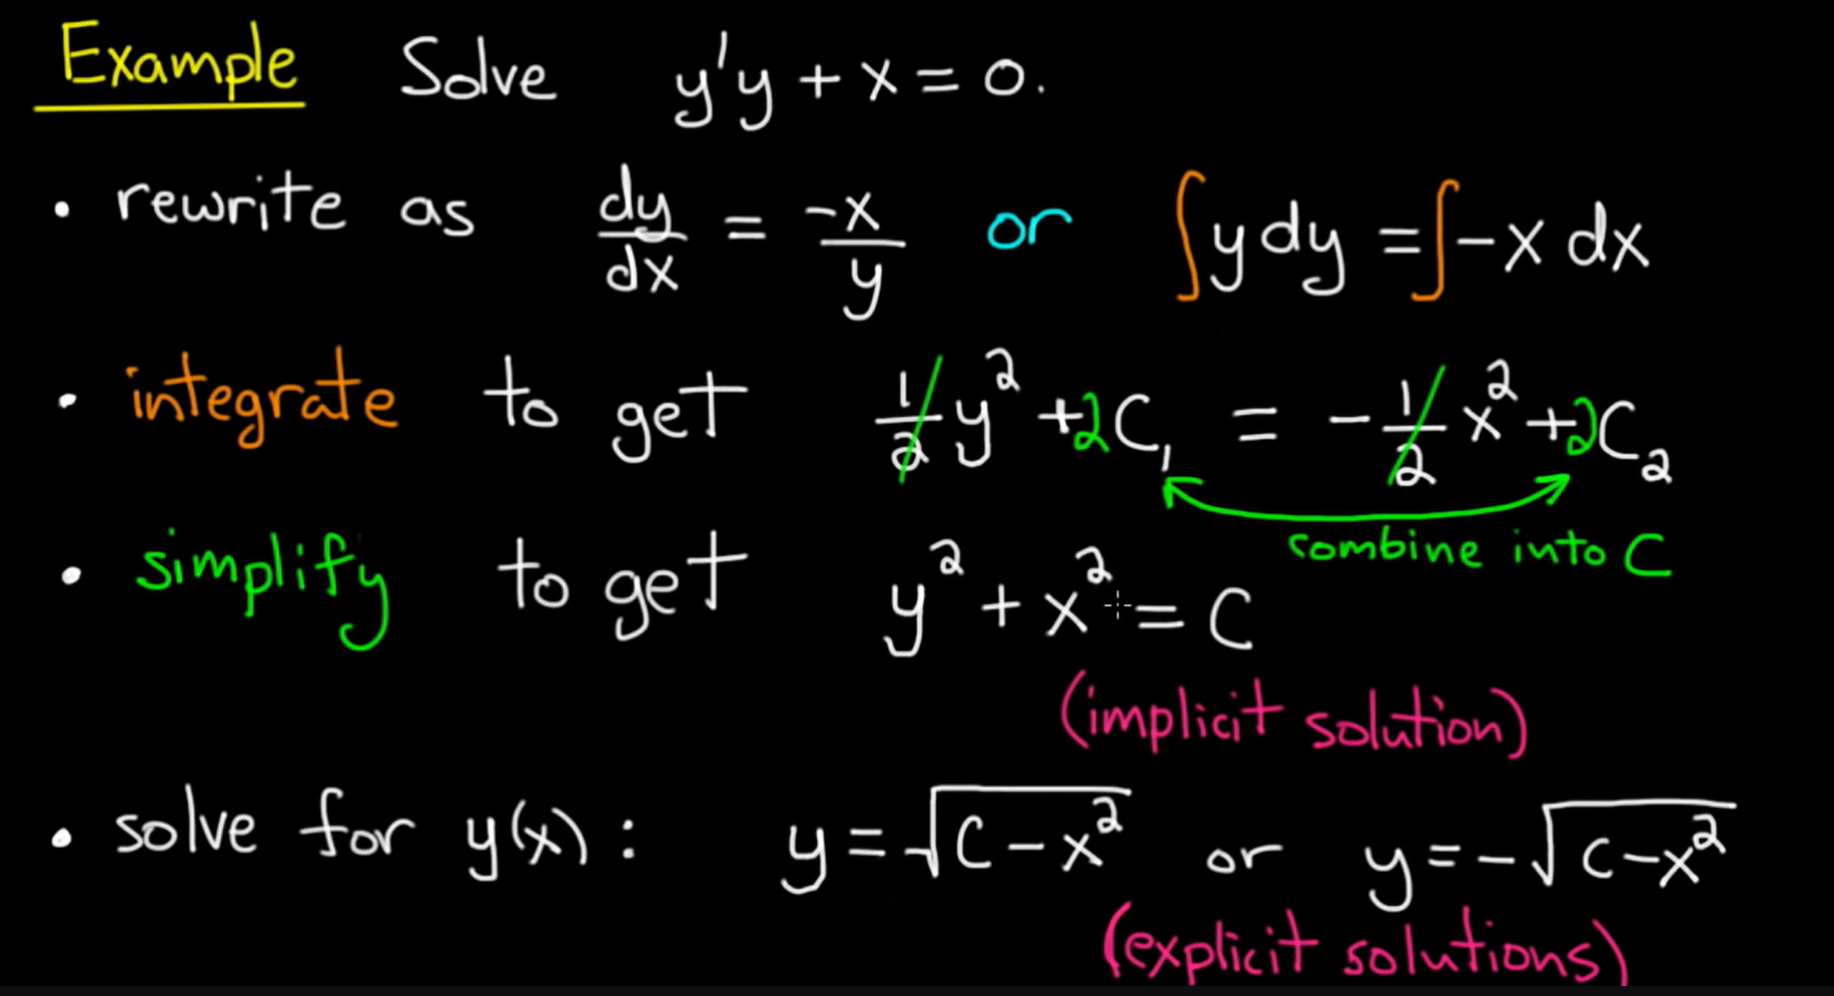 Example Solve y'y + x = 0.
• rewrite as dy/dx = -x/y or ∫y dy = ∫-x dx
• integrate to get 1/2 y² + 2C₁ = -1/2 x² + 2C₂
combine into C
• simplify to get y² + x² = C
(implicit solution)
• solve for y(x): y = √(C - x²) or y = -√(C - x²)
(explicit solutions)